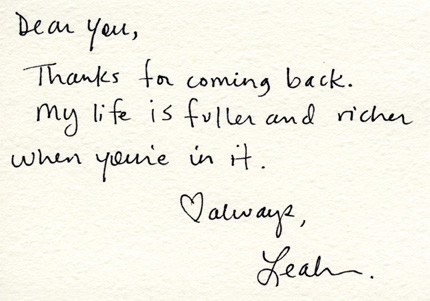 Dear you,
Thanks for coming back.
My life is fuller and richer
when you're in it.
♡always,
Leah.